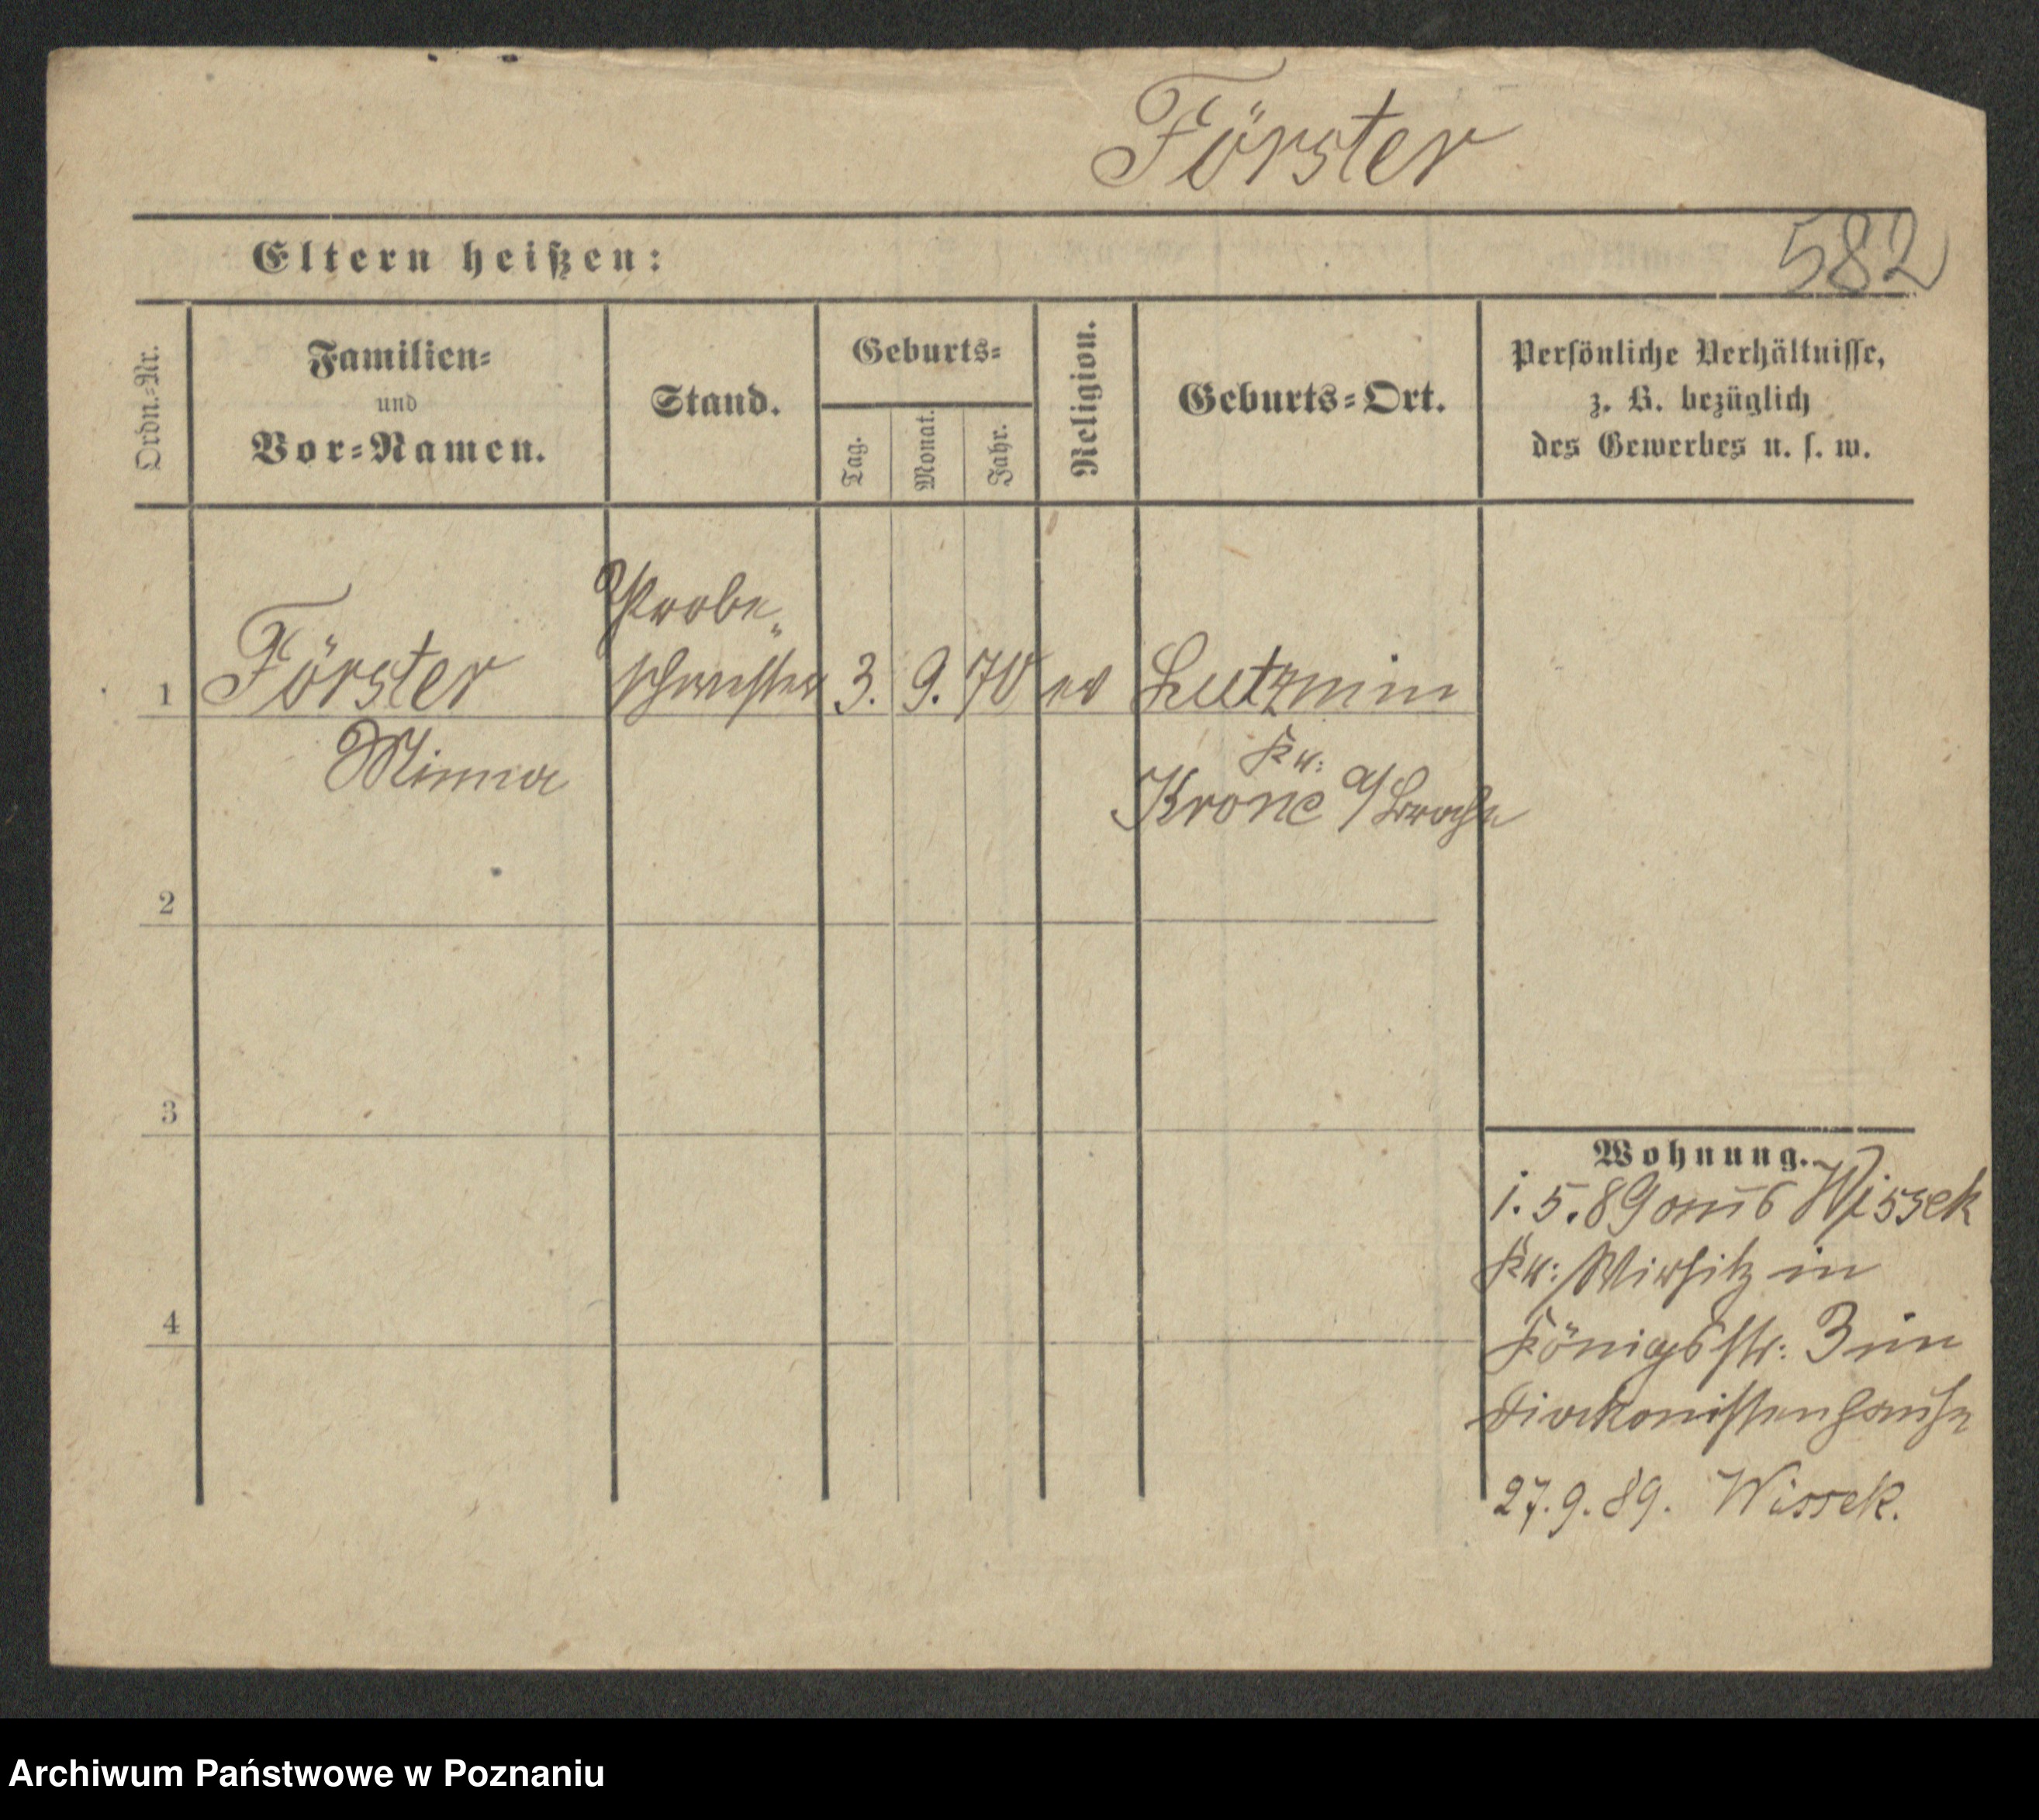 Förster
582
Eltern heißen:
Ordn.-Nr.
Familien-
und
Vor-Namen.
Stand.
Geburts-
Tag.
Monat.
Jahr.
Religion.
Geburts-Ort.
Persönliche Verhältnisse,
z. B. bezüglich
des Gewerbes u. s. w.
Probe-
1 Förster schwester 3. 9. 70 ev Lutzmin
Minna
Kr:
Krone a/Brahe
2
3
4
Wohnung.
1.5.89 aus Wissek
Kr: Wirsitz in
Königsstr: 3 im
Diakonissenhause
27.9.89. Wissek.
Archiwum Państwowe w Poznaniu